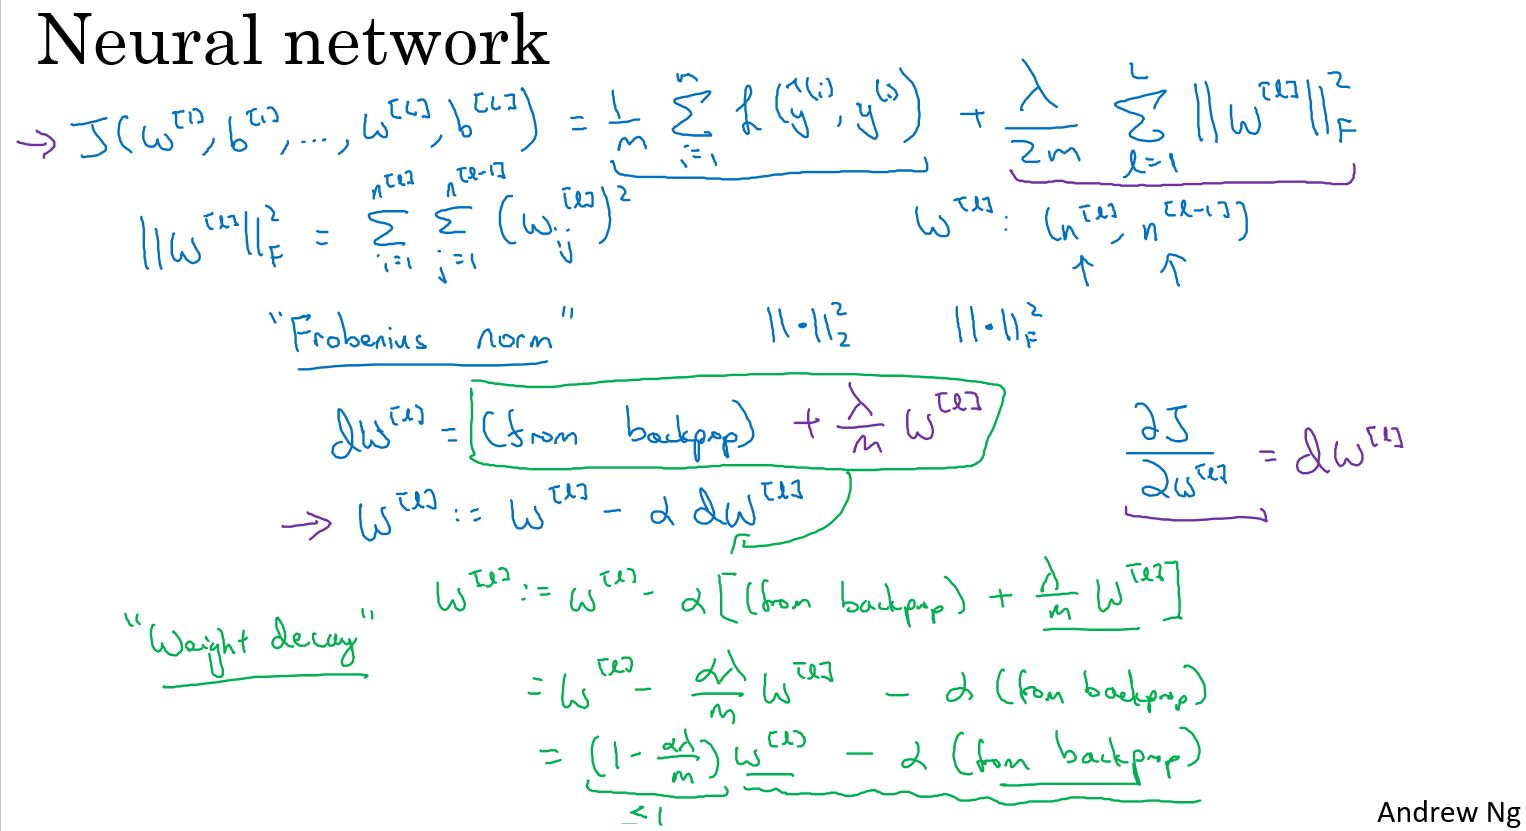 Neural network
→ J(w^[1], b^[1], ..., w^[L], b^[L]) = 1/m Σ_{i=1}^{m} L(ŷ^(i), y^(i)) + λ/2m Σ_{l=1}^{L} ||w^[l]||_F^2
||w^[l]||_F^2 = Σ_{i=1}^{n^[l]} Σ_{j=1}^{n^[l-1]} (w_ij^[l])^2
w^[l]: (n^[l], n^[l-1])
↑ ↑
"Frobenius norm" ||·||_2^2 ||·||_F^2
dw^[l] = (from backprop) + λ/m w^[l]
∂J/∂w^[l] = dw^[l]
→ w^[l] := w^[l] - α dw^[l]
w^[l] := w^[l] - α[(from backprop) + λ/m w^[l]]
"Weight decay"
= w^[l] - αλ/m w^[l] - α (from backprop)
= (1 - αλ/m) w^[l] - α (from backprop)
<1
Andrew Ng